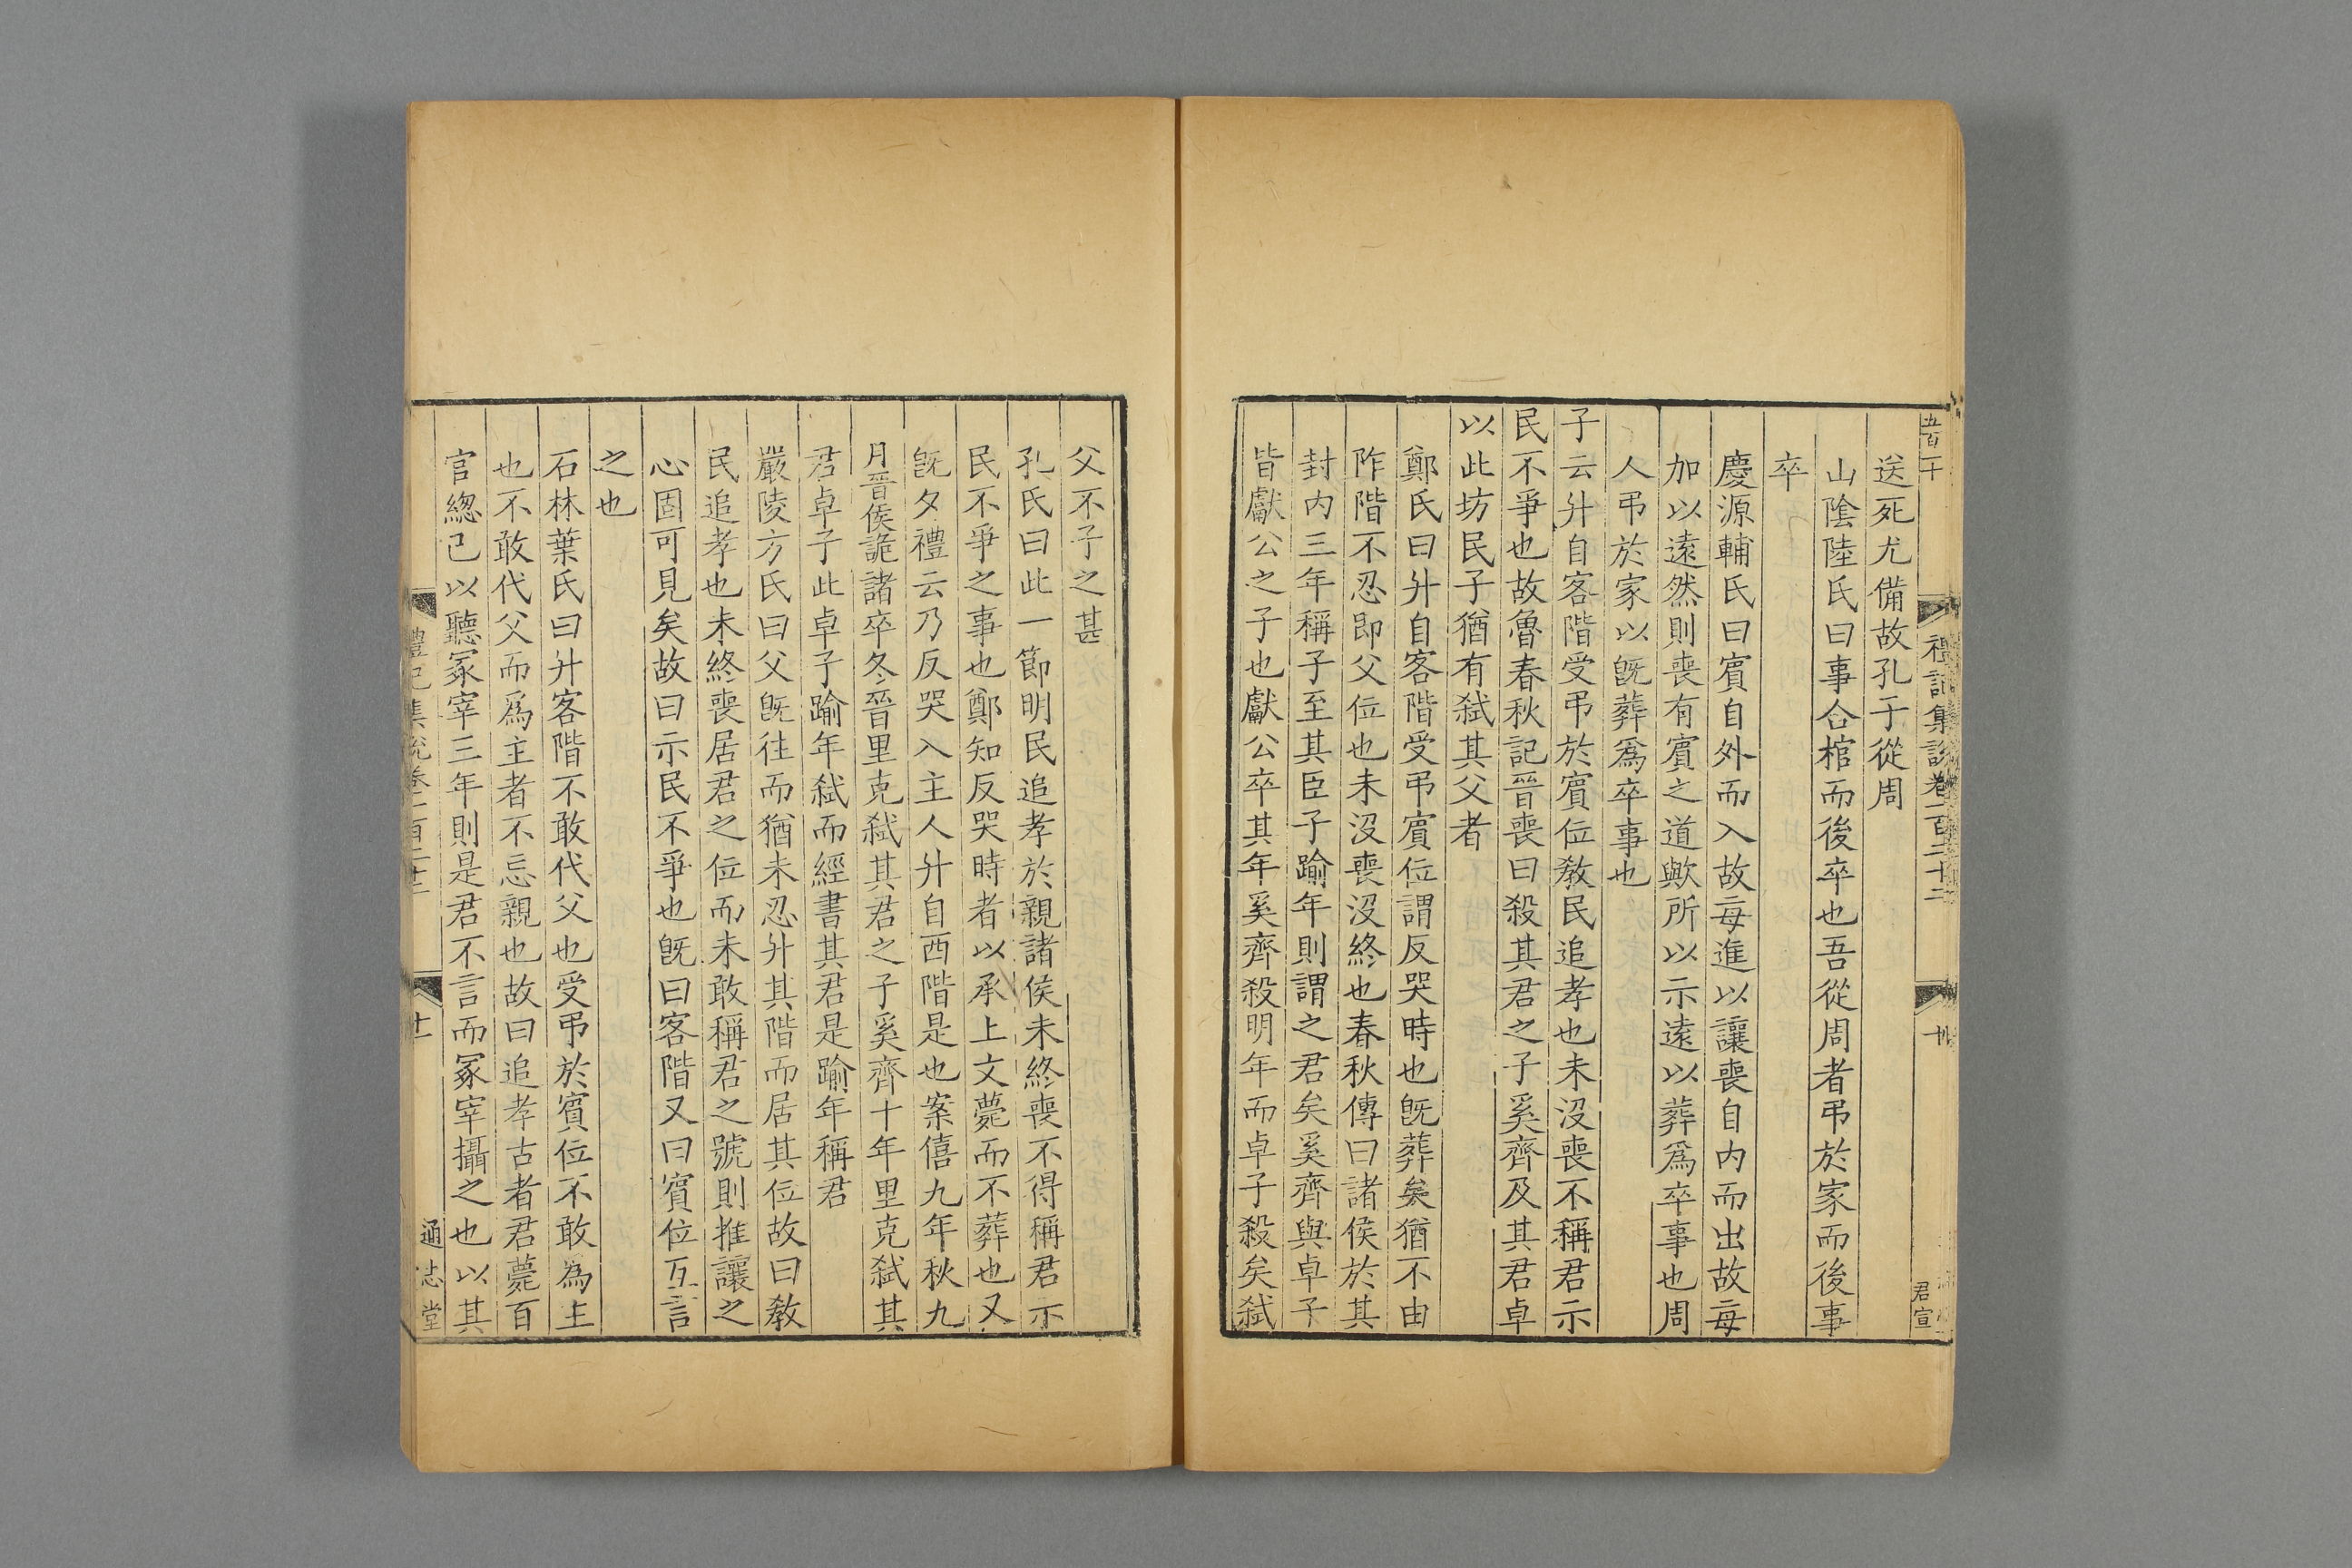 五百二十
禮記集說卷一百二十二
君宣
送死尤備故孔子從周
山陰陸氏曰事合棺而後卒也吾從周者弔於家而後事
卒
慶源輔氏曰賓自外而入故每進以讓喪自内而出故每
加以遠然則喪有賓之道歟所以示遠以葬爲卒事也周
人弔於家以旣葬爲卒事也
子云升自客階受弔於賓位敎民追孝也未沒喪不稱君示
民不爭也故魯春秋記晉喪曰殺其君之子奚齊及其君卓
以此坊民子猶有弑其父者
鄭氏曰升自客階受弔賓位謂反哭時也旣葬矣猶不由
阼階不忍即父位也未沒喪沒終也春秋傳曰諸侯於其
封内三年稱子至其臣子踰年則謂之君矣奚齊與卓子
皆獻公之子也獻公卒其年奚齊殺明年而卓子殺矣弑
父不子之甚
孔氏曰此一節明民追孝於親諸侯未終喪不得稱君示
民不爭之事也鄭知反哭時者以承上文薨而不葬也又
旣夕禮云乃反哭入主人升自西階是也案僖九年秋九
月晉侯詭諸卒冬晉里克弑其君之子奚齊十年里克弑其
君卓子此卓子踰年弑而經書其君是踰年稱君
嚴陵方氏曰父旣往而猶未忍升其階而居其位故曰敎
民追孝也未終喪居君之位而未敢稱君之號則推讓之
心固可見矣故曰示民不爭也旣曰客階又曰賓位互言
之也
石林葉氏曰升客階不敢代父也受弔於賓位不敢為主
也不敢代父而爲主者不忘親也故曰追孝古者君薨百
官緫己以聽冢宰三年則是君不言而冢宰攝之也以其
禮記集說卷一百二十二
十一
通志堂